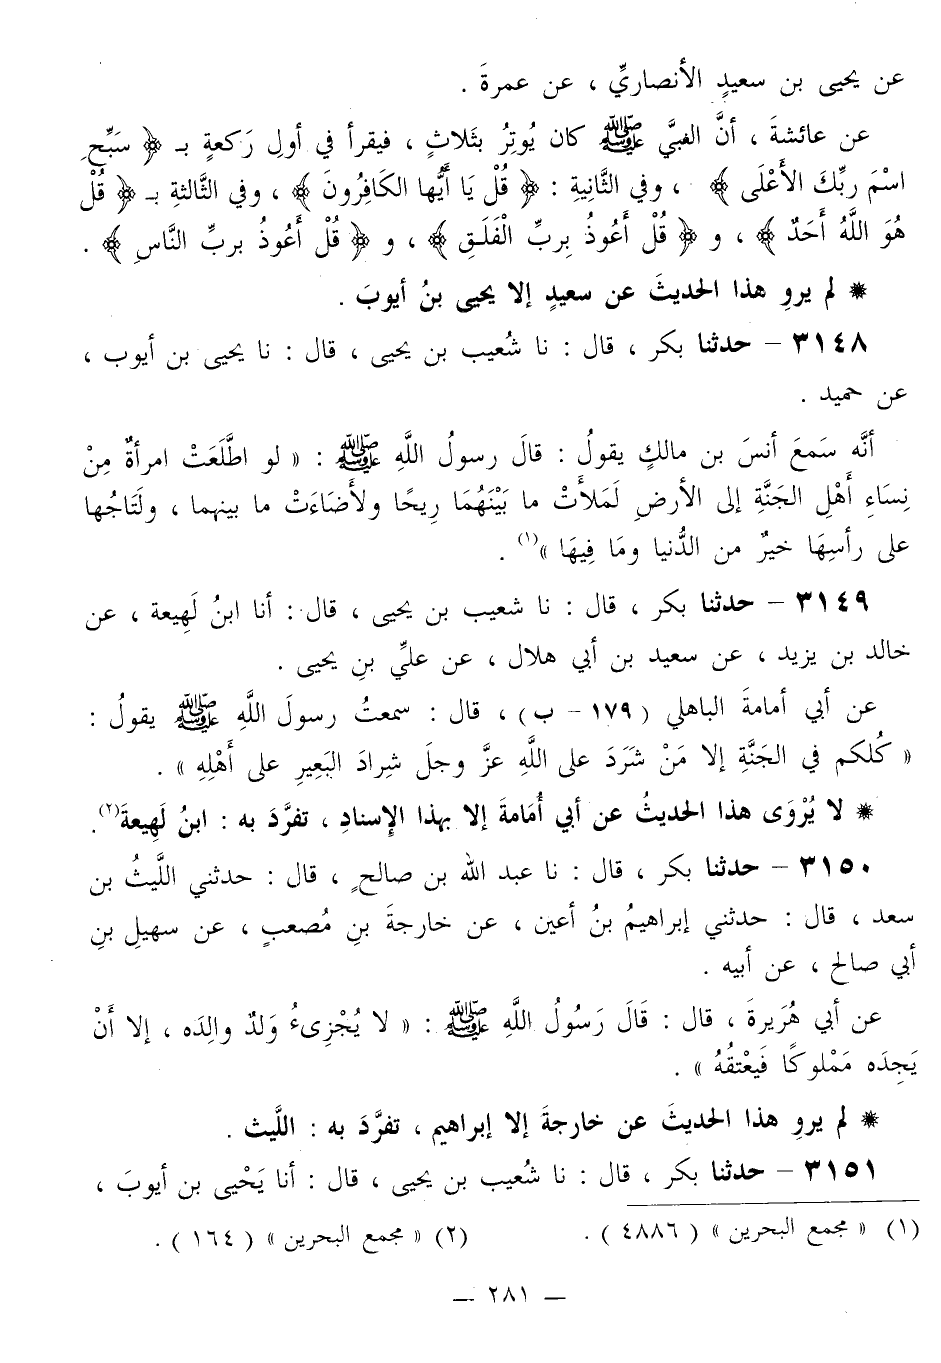 عن يحيى بن سعيدٍ الأنصاريِّ ، عن عمرةَ .
عن عائشةَ ، أنَّ النبيَّ ﷺ كان يُوتِرُ بثَلاثٍ ، فيقرأ في أولِ رَكعةٍ بـ ﴿ سَبِّحِ
اسْمَ ربِّكَ الأَعْلَى ﴾ ، وفي الثَّانِيةِ : ﴿ قُلْ يَا أَيُّها الكَافِرُونَ ﴾ ، وفي الثَّالثةِ بـ ﴿ قُلْ
هُوَ اللَّهُ أَحَدٌ ﴾ ، و ﴿ قُلْ أَعُوذُ بِربِّ الْفَلَـقِ ﴾ ، و ﴿ قُلْ أَعُوذُ بربِّ النَّاسِ ﴾ .
* لم يروِ هذا الحديثَ عن سعيدٍ إلا يحيى بنُ أيوبَ .
٣١٤٨ – حدثنا بكر ، قال : نا شُعيب بن يحيى ، قال : نا يحيى بن أيوب ،
عن حميد .
أنَّه سَمعَ أنسَ بن مالكٍ يقولُ : قالَ رسولُ اللَّهِ ﷺ : « لو اطَّلَعَتْ امرأةٌ مِنْ
نِسَاءِ أَهْلِ الجَنَّةِ إلى الأرضِ لَمَلأَتْ ما بَيْنَهُمَا رِيحًا ولأَضَاءَتْ ما بينهما ، ولَتَاجُها
على رأسِهَا خيرٌ من الدُّنيا ومَا فِيهَا »(١) .
٣١٤٩ – حدثنا بكر ، قال : نا شعيب بن يحيى ، قال : أنا ابنُ لَهِيعة ، عن
خالد بن يزيد ، عن سعيد بن أبي هلال ، عن عليِّ بنِ يحيى .
عن أبي أمامةَ الباهلي ( ١٧٩ – ب ) ، قال : سمعتُ رسولَ اللَّهِ ﷺ يقولُ :
« كُلكم في الجَنَّةِ إلا مَنْ شَرَدَ على اللَّهِ عزَّ وجلَ شِرادَ البَعِيرِ على أَهْلِهِ » .
* لا يُرْوَى هذا الحديثُ عن أبي أُمَامةَ إلا بهذا الإسنادِ ، تفرَّدَ به : ابنُ لَهِيعةَ(٢).
٣١٥٠ – حدثنا بكر ، قال : نا عبد الله بن صالحٍ ، قال : حدثني اللَّيثُ بن
سعد ، قال : حدثني إبراهيمُ بنُ أعين ، عن خارجةَ بنِ مُصعبٍ ، عن سهيلِ بنِ
أبي صالح ، عن أبيه .
عن أبي هُرَيرةَ ، قال : قَالَ رَسُولُ اللَّهِ ﷺ : « لا يُجْزِىءُ وَلدٌ والِدَه ، إلا أَنْ
يَجِدَه مَمْلوكًا فَيعْتقُهُ » .
* لم يروِ هذا الحديثَ عن خارجةَ إلا إبراهيم ، تفرَّدَ به : اللَّيث .
٣١٥١ – حدثنا بكر ، قال : نا شُعيب بن يحيى ، قال : أنا يَحْيى بن أيوبَ ،
(١) « مجمع البحرين » ( ٤٨٨٦ ) . (٢) « مجمع البحرين » ( ١٦٤ ) .
— ٢٨١ —